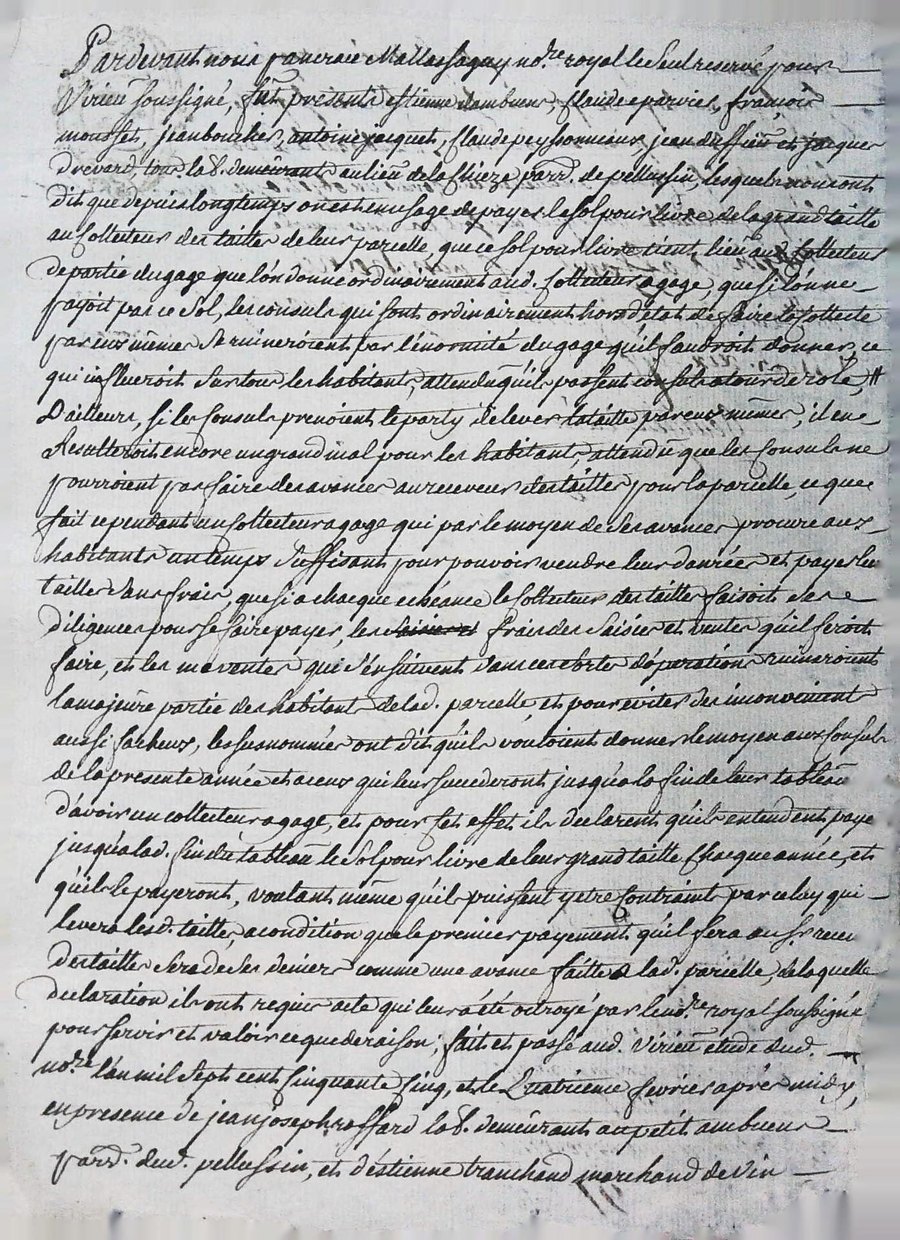 Pardevant nous pancrace Mallassagny no.re royal le Seul reservé pour
Virieu soussigné, fut présents estienne dambuent, Claude eparvier, françois
mousset, jean bouchet, antoine jacquet, Claude peyssonneaux, jean duffieu et jacques
drevard, tous lab.r demeurants au lieu de la Chieze parr. de pellussin, lesquels nous ont
dit que depuis longtemps on est en usage de payer le sol pour livre de la grand taille
au Collecteur des tailles de leur parcelle, que ce sol pour livre tient lieu aud. Collecteur
de partie du gage que l'on donne ordinairement aud. Collecteur a gage, que si l'on ne
payoit pas ce Sol, les consuls qui sont ordinairement hors d'etat de faire la Collecte
par eux mêmes se ruineroient par l'énormité du gage qu'il faudroit donner, ce
qui influeroit sur tous les habitants, attendu qu'ils passent consuls a tour de role,
D'ailleurs, si les Consuls prenoient le party de lever la taille par eux mêmes, il en
Resulteroit encore un grand mal pour les habitants, attendu que les Consuls ne
pourroient pas faire des avances au receveur des tailles pour la parcelle, ce que
fait cependant un Collecteur a gage qui par le moyen de ses avances procure aux
habitants un temps suffisant pour pouvoir vendre leurs danrées et payer leur
taille sans frais, que si a chaque echéance le Collecteur des tailles faisoit ses
diligences pour se faire payer, les frais des Saisies et ventes qu'il seroit
faire, et les meventes qui s'en suivent dans ces sortes d'operations ruineroient
la majeure partie des habitants de lad. parcelle, et pour eviter des inconvenients
aussi facheux, les susnommés ont dit qu'ils vouloient donner le moyen aux Consuls
de la presente année et a ceux qui leur succederont jusqu'a la fin de leur tableau
d'avoir un collecteur a gage, et pour cet effet ils declarent qu'ils entendent payer
jusqu'a lad. fin du tableau le Sol pour livre de leur grand taille Chaque année, et
qu'ils le payeront, voulant même qu'ils puissent y etre Contraints par celuy qui
levera lesd. tailles, a condition que le premier payement qu'il fera au s.r receveur
Des tailles sera de ses deniers comme une avance faitte a lad. parcelle, de laquelle
declaration ils ont requis acte qui leur a été octroyé par led. no.re royal soussigné
pour servir et valoir ce que de raison, fait et passé aud. Virieu etude dud.
no.re l'an mil Sept cent Cinquante Cinq, et le Quatrieme fevrier après midy,
en presence de jean joseph raffard lab.r demeurant au petit ambuent
parr. dud. pellussin, et d'estienne tranchand marchand de vin